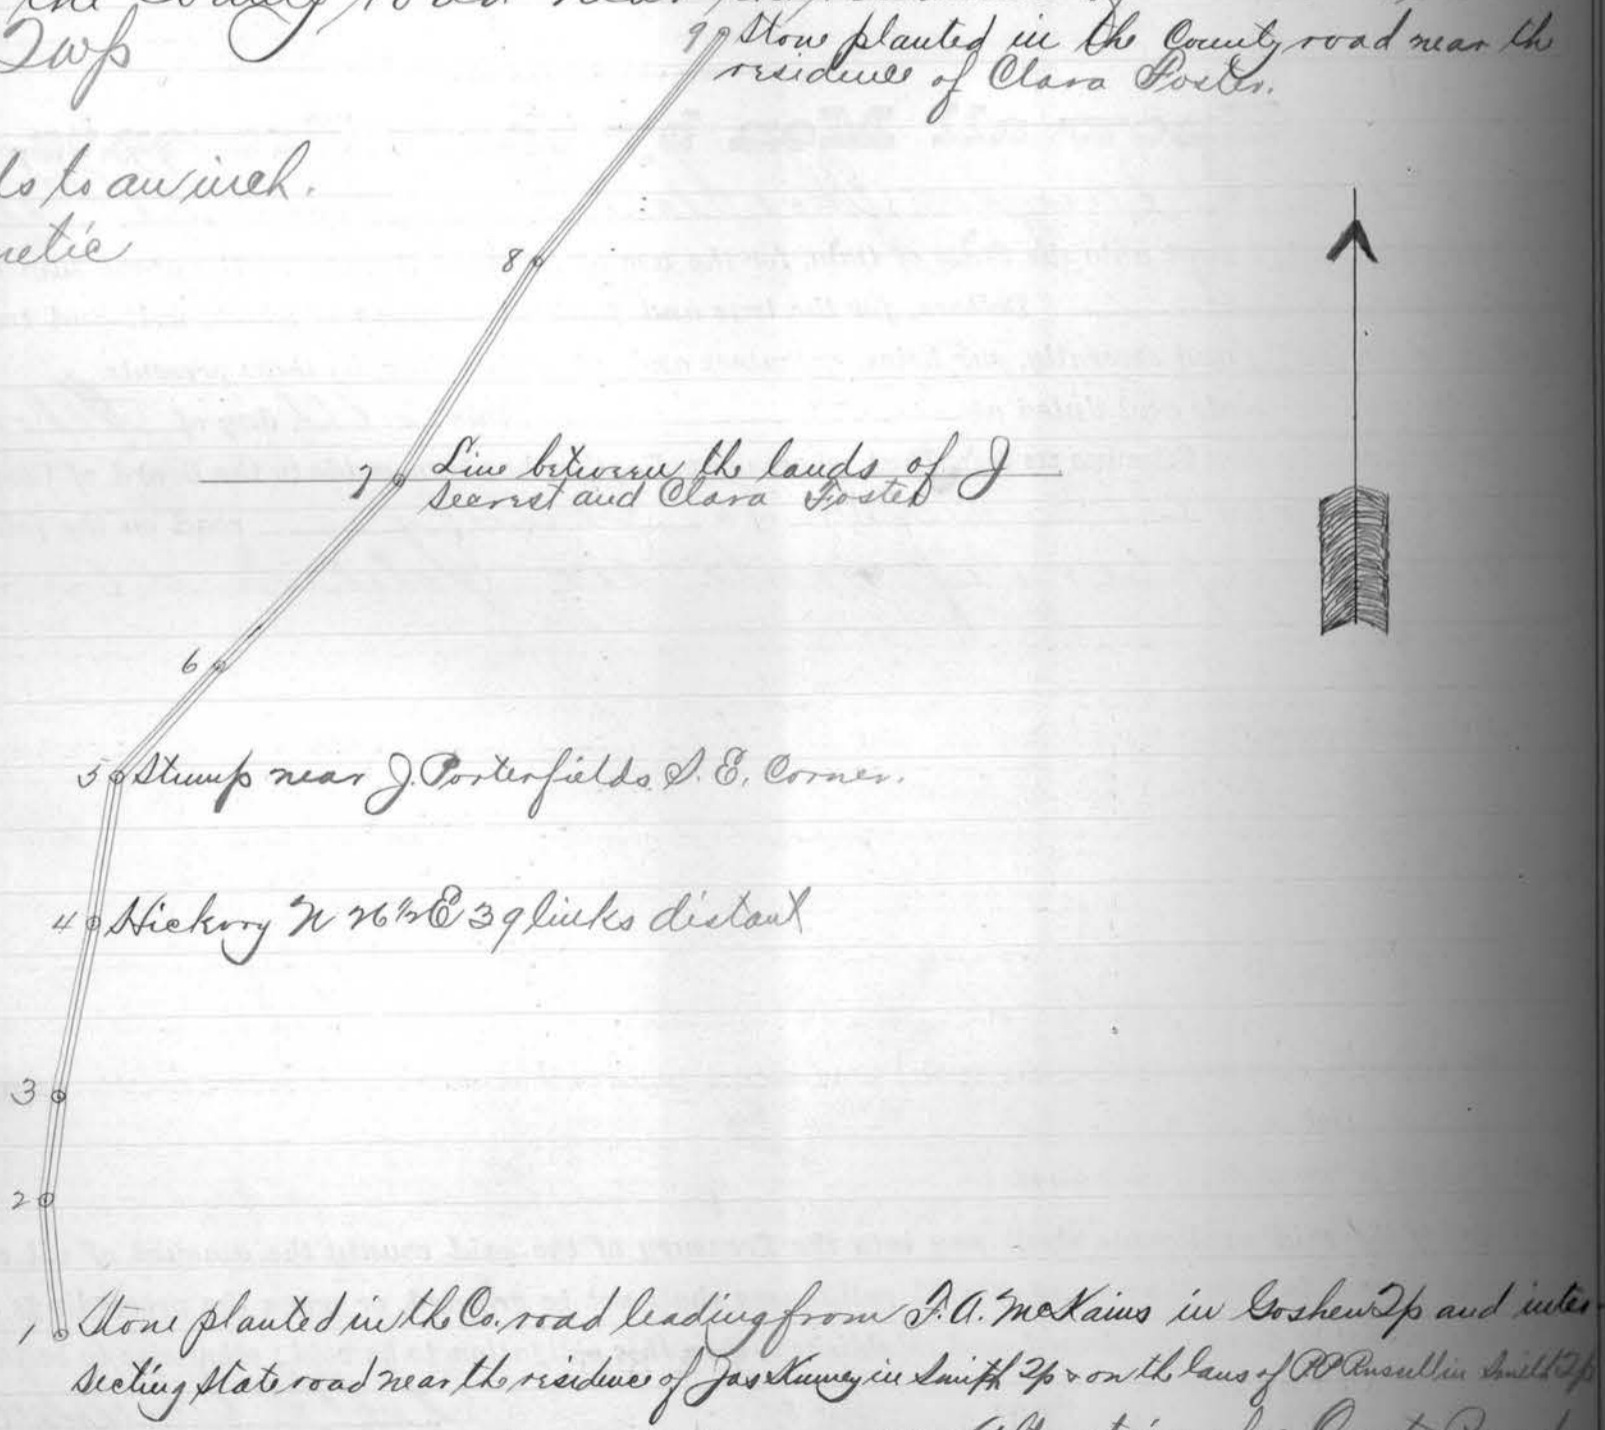 the County road near
Twp
9 Stone planted in the County road near the
residence of Clara Foster.
to an inch.
netic
8
7 Line between the lands of J
Secrest and Clara Foster
6
5 Stump near J. Porterfields S. E. Corner.
4 Hickory N 26 1/2 E 39 links distant
3
2
1 Stone planted in the Co. road leading from F. A. McKains in Goshen Tp and inter-
secting State road near the residence of Jas Kinney in Smith Tp & on the lans of RP Russell in Smith Tp